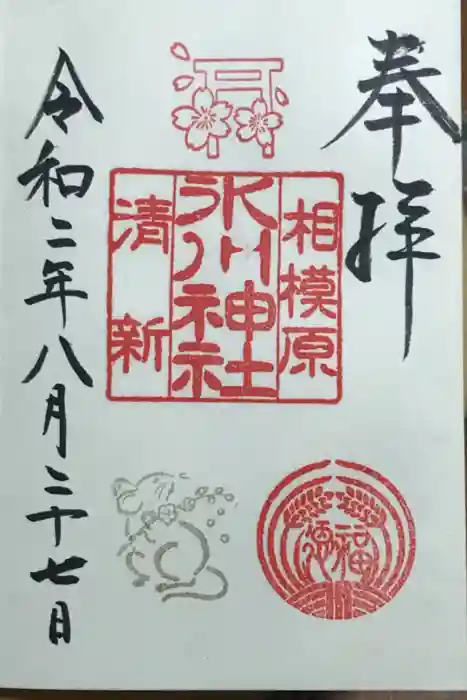 奉拝
相模原
氷川神社
清新
福徳
令和二年八月二十七日